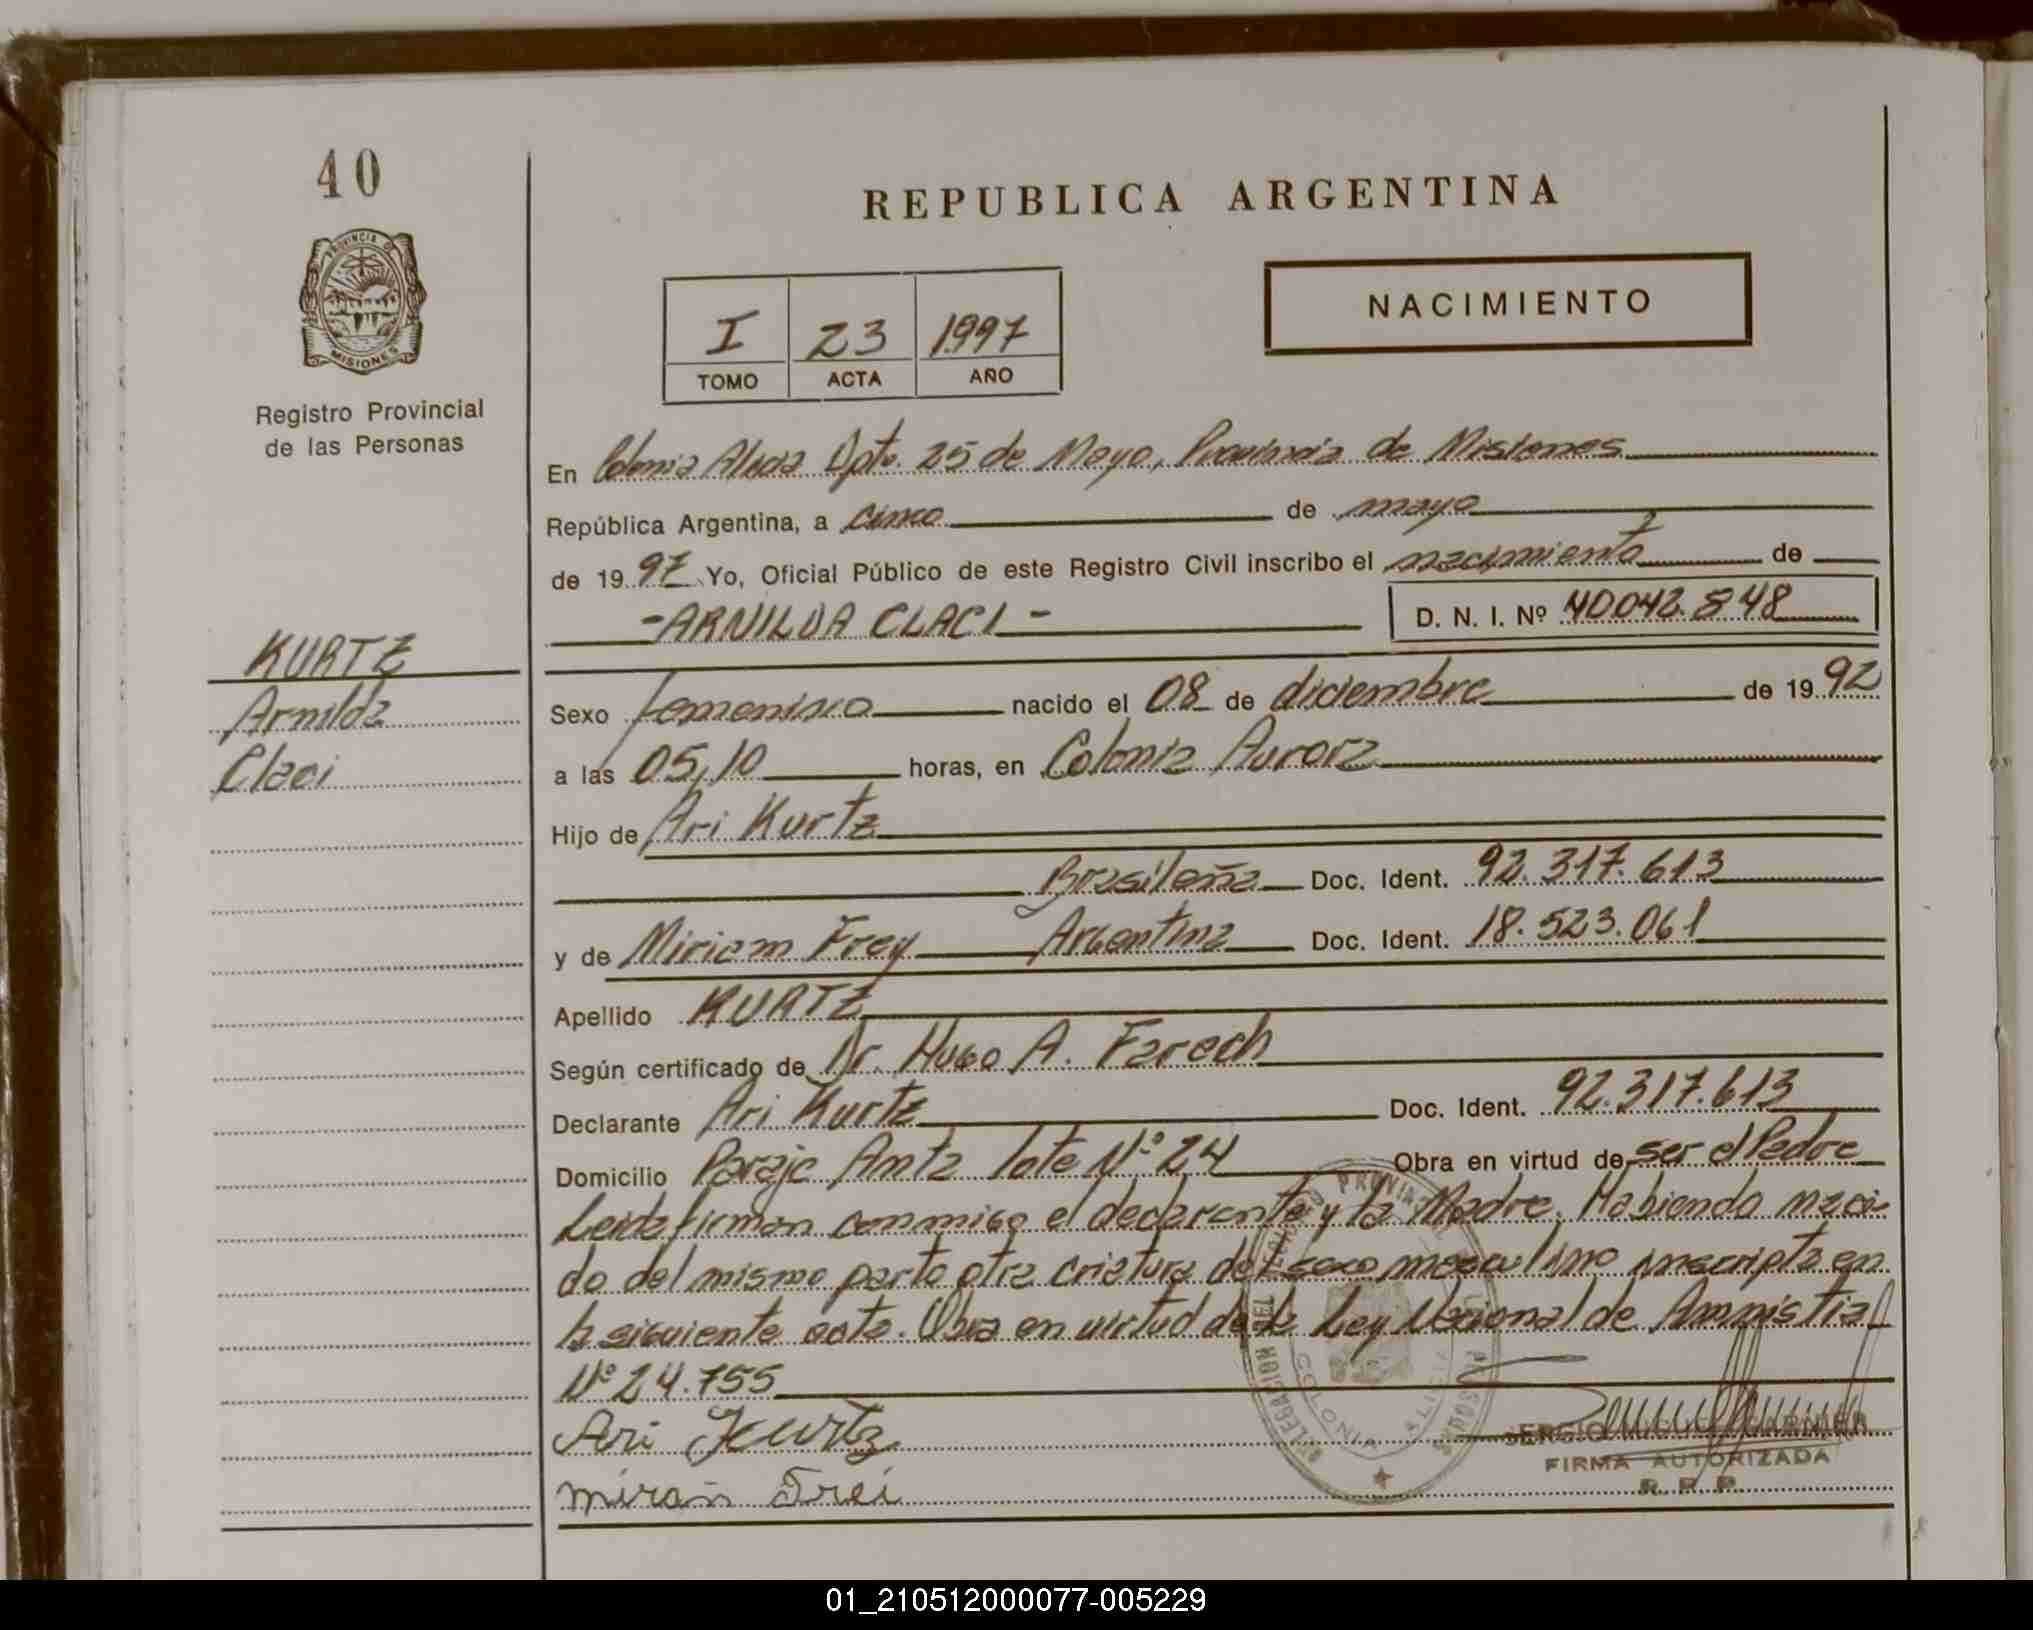 40
REPUBLICA ARGENTINA
PROVINCIA DE MISIONES
Registro Provincial
de las Personas
I 23 1997
TOMO ACTA AÑO
NACIMIENTO
En Colonia Alicia Dpto. 25 de Mayo, Provincia de Misiones
República Argentina, a cinco de mayo
de 1997 Yo, Oficial Público de este Registro Civil inscribo el nacimiento de
-ARNILDA CLACI- D. N. I. Nº 40.042.848
KURTZ
Arnilda
Claci
Sexo femenino nacido el 08 de diciembre de 1992
a las 05,10 horas, en Colonia Aurora
Hijo de Ari Kurtz
Brasileña Doc. Ident. 92.317.613
y de Miriam Frey Argentina Doc. Ident. 18.523.061
Apellido KURTZ
Según certificado de Dr. Hugo A. Farech
Declarante Ari Kurtz Doc. Ident. 92.317.613
Domicilio Paraje Anta lote Nº 24 Obra en virtud de ser el Padre
Leida firman conmigo el declarante y la Madre. Habiendo naci-
do del mismo parto otra criatura del sexo masculino inscripta en
la siguiente acta. Obra en virtud de la Ley Nacional de Amnistia
Nº 24.755
Ari Kurtz
miran Frei
DELEGACION DEL REGISTRO PROVINCIAL DE LAS PERSONAS
COLONIA ALICIA
SERGIO MIGUEL GARNIER
FIRMA AUTORIZADA
R. P. P.
01_210512000077-005229